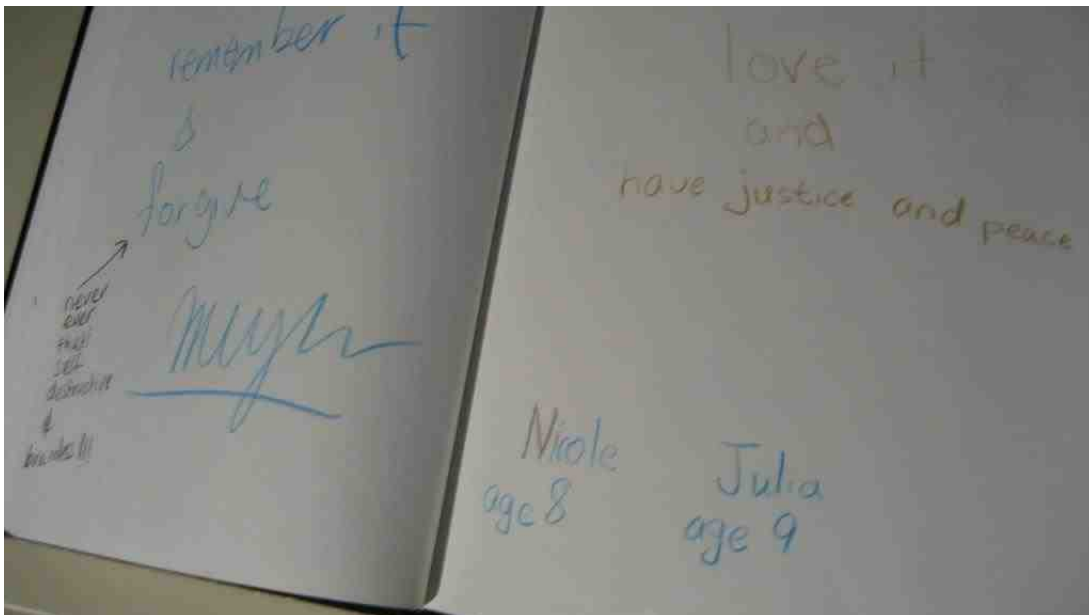 remember it
&
forgive
never
ever
that!
self
destructive
&
love it
and
have justice and peace
Nicole
age 8
Julia
age 9